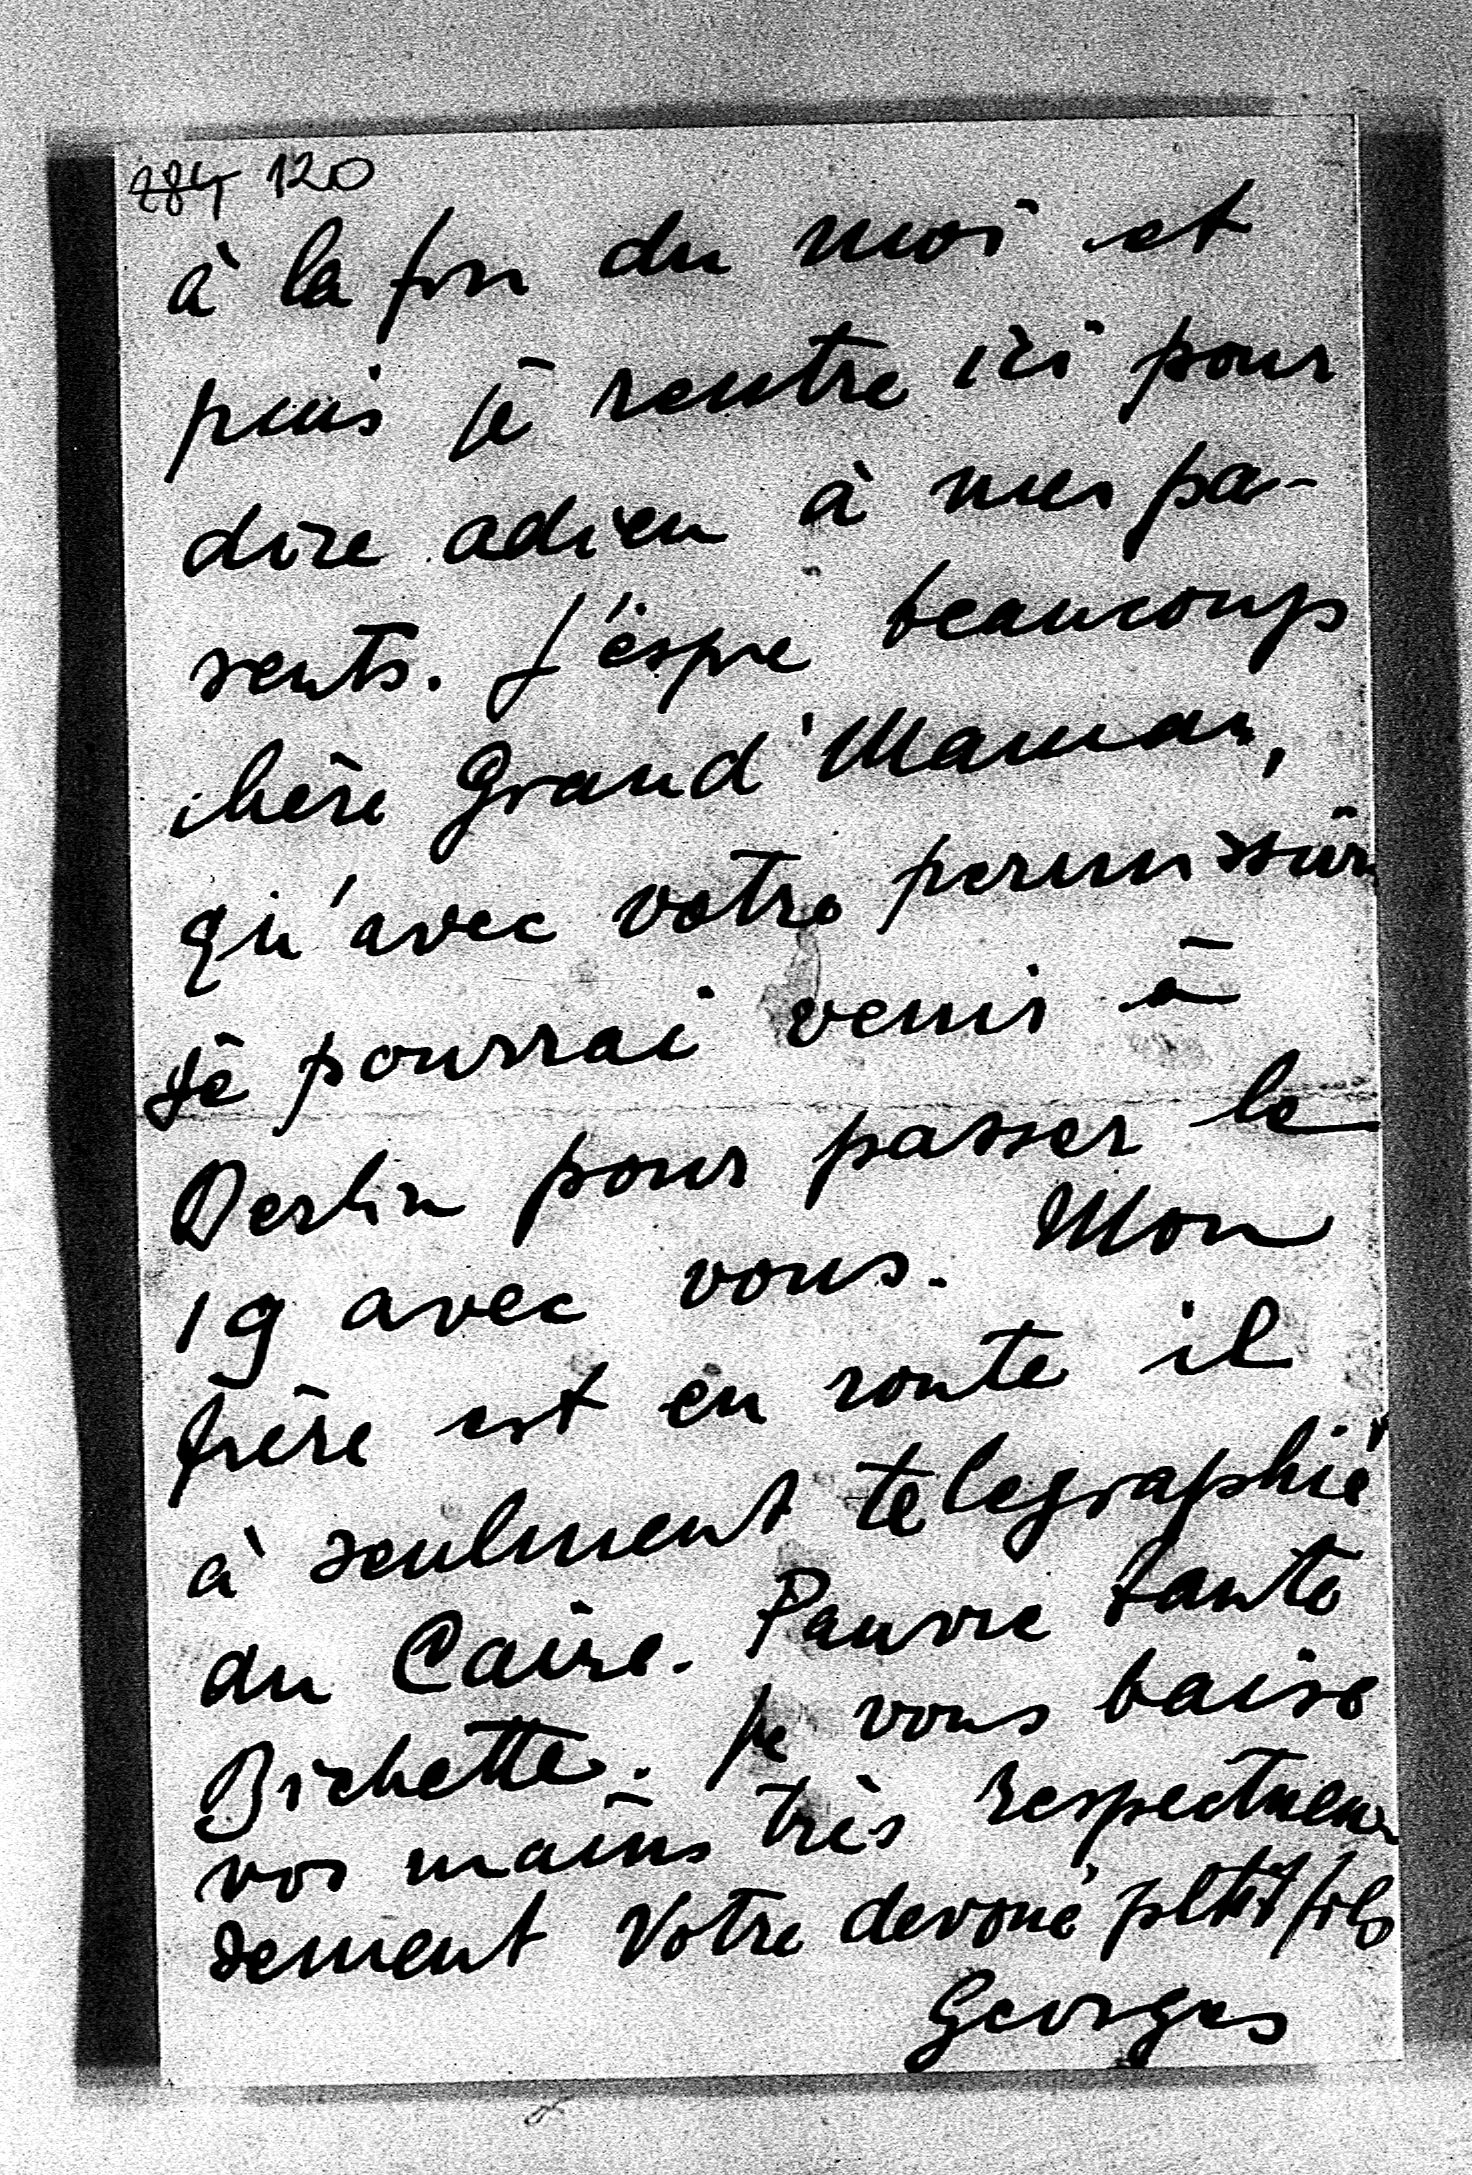 284 120
à la fin du mois et
puis je rentre ici pour
dire adieu à mes pa-
rents. J'éspre beaucoup
chère Grand'Maman,
qu'avec votre permission
je pourrai venir à
Berlin pour passer le
19 avec vous. Mon
frère est en route il
à seulment telegraphié
du Caire. Pauvre tante
Bichette. Je vous baise
vos mains très respectueu
sement Votre devoué petit fils
Georges